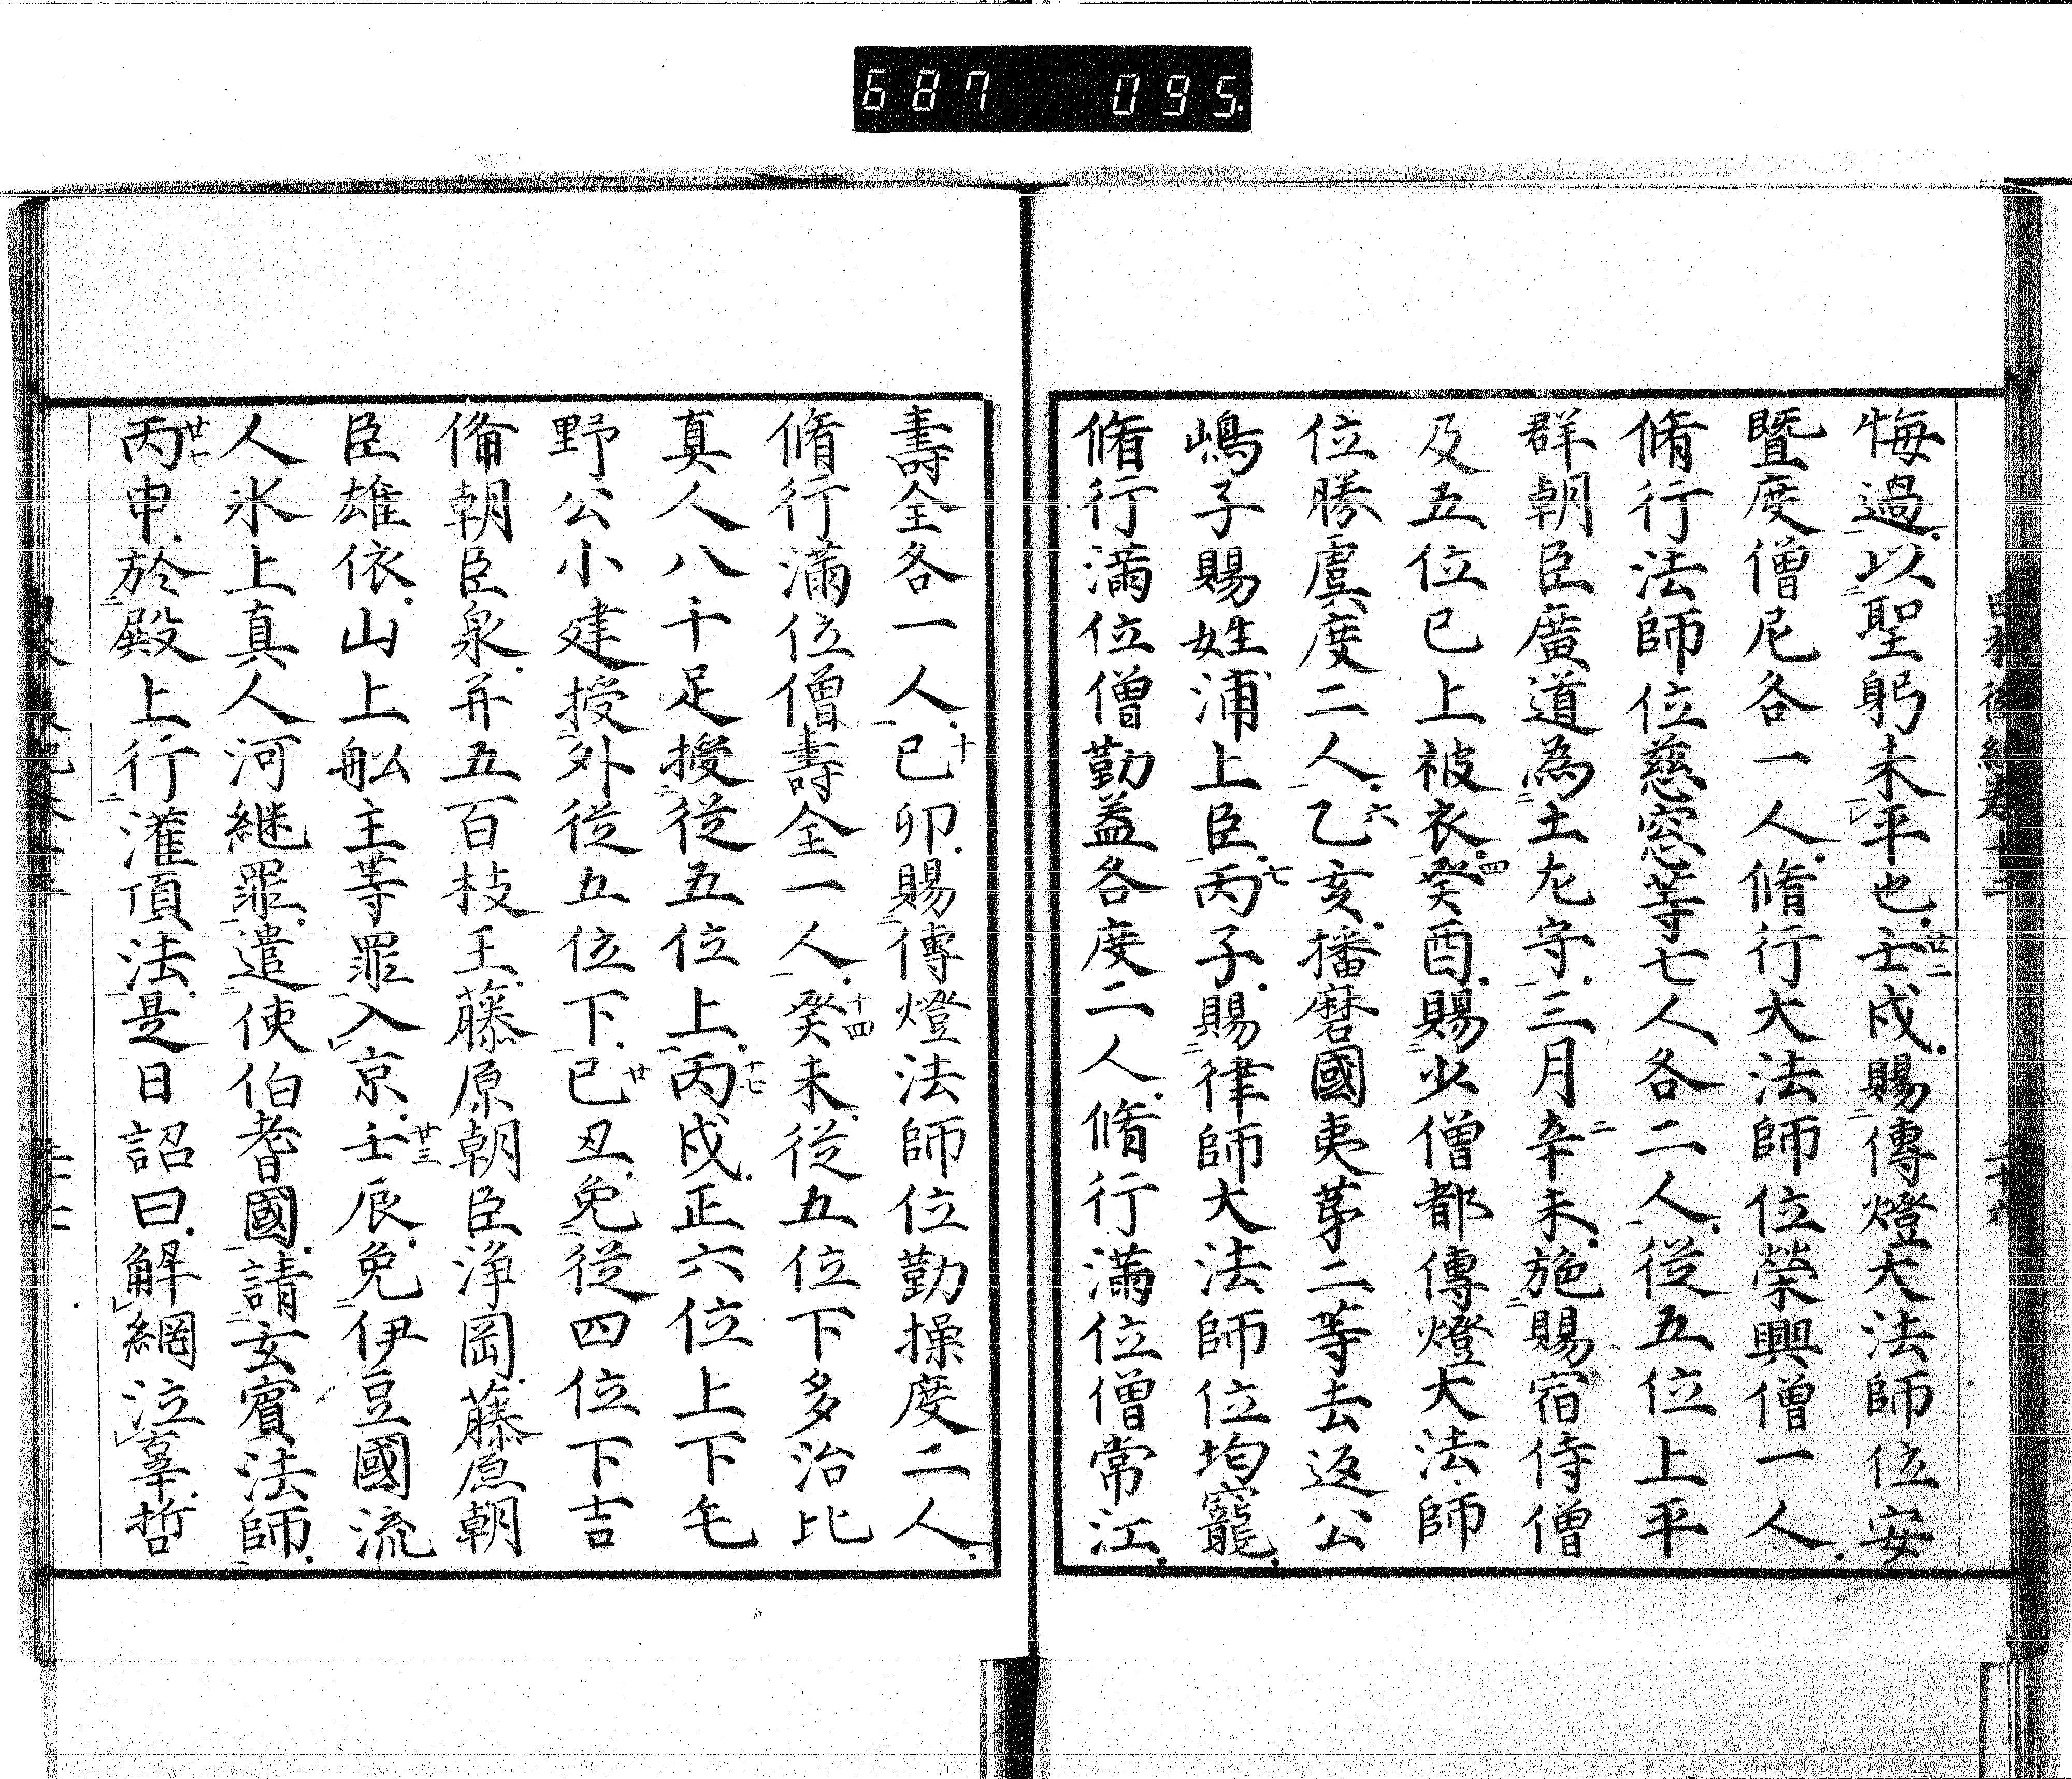 687 095
悔過以聖躬未平也壬戌賜傳燈大法師位安
曁度僧尼各一人脩行大法師位榮興僧一人
脩行法師位慈窓等七人各二人從五位上平
群朝臣廣道為土左守三月辛未施賜宿侍僧
及五位已上被衣癸酉賜少僧都傳燈大法師
位勝虞度二人乙亥播磨國夷苐二等去返公
嶋子賜姓浦上臣丙子賜律師大法師位均寵
脩行滿位僧勤益各度二人脩行滿位僧常江
壽全各一人己卯賜傳燈法師位勤操度二人
脩行滿位僧壽全一人癸未從五位下多治比
真人八千足授從五位上丙戌正六位上下毛
野公小建授外從五位下己丑免從四位下吉
備朝臣泉并五百枝王藤原朝臣浄岡藤原朝
臣雄依山上舩主等罪入京壬辰免伊豆國流
人氷上真人河継罪遣使伯耆國請玄賓法師
丙申於殿上行灌頂法是日詔曰解網泣辜哲